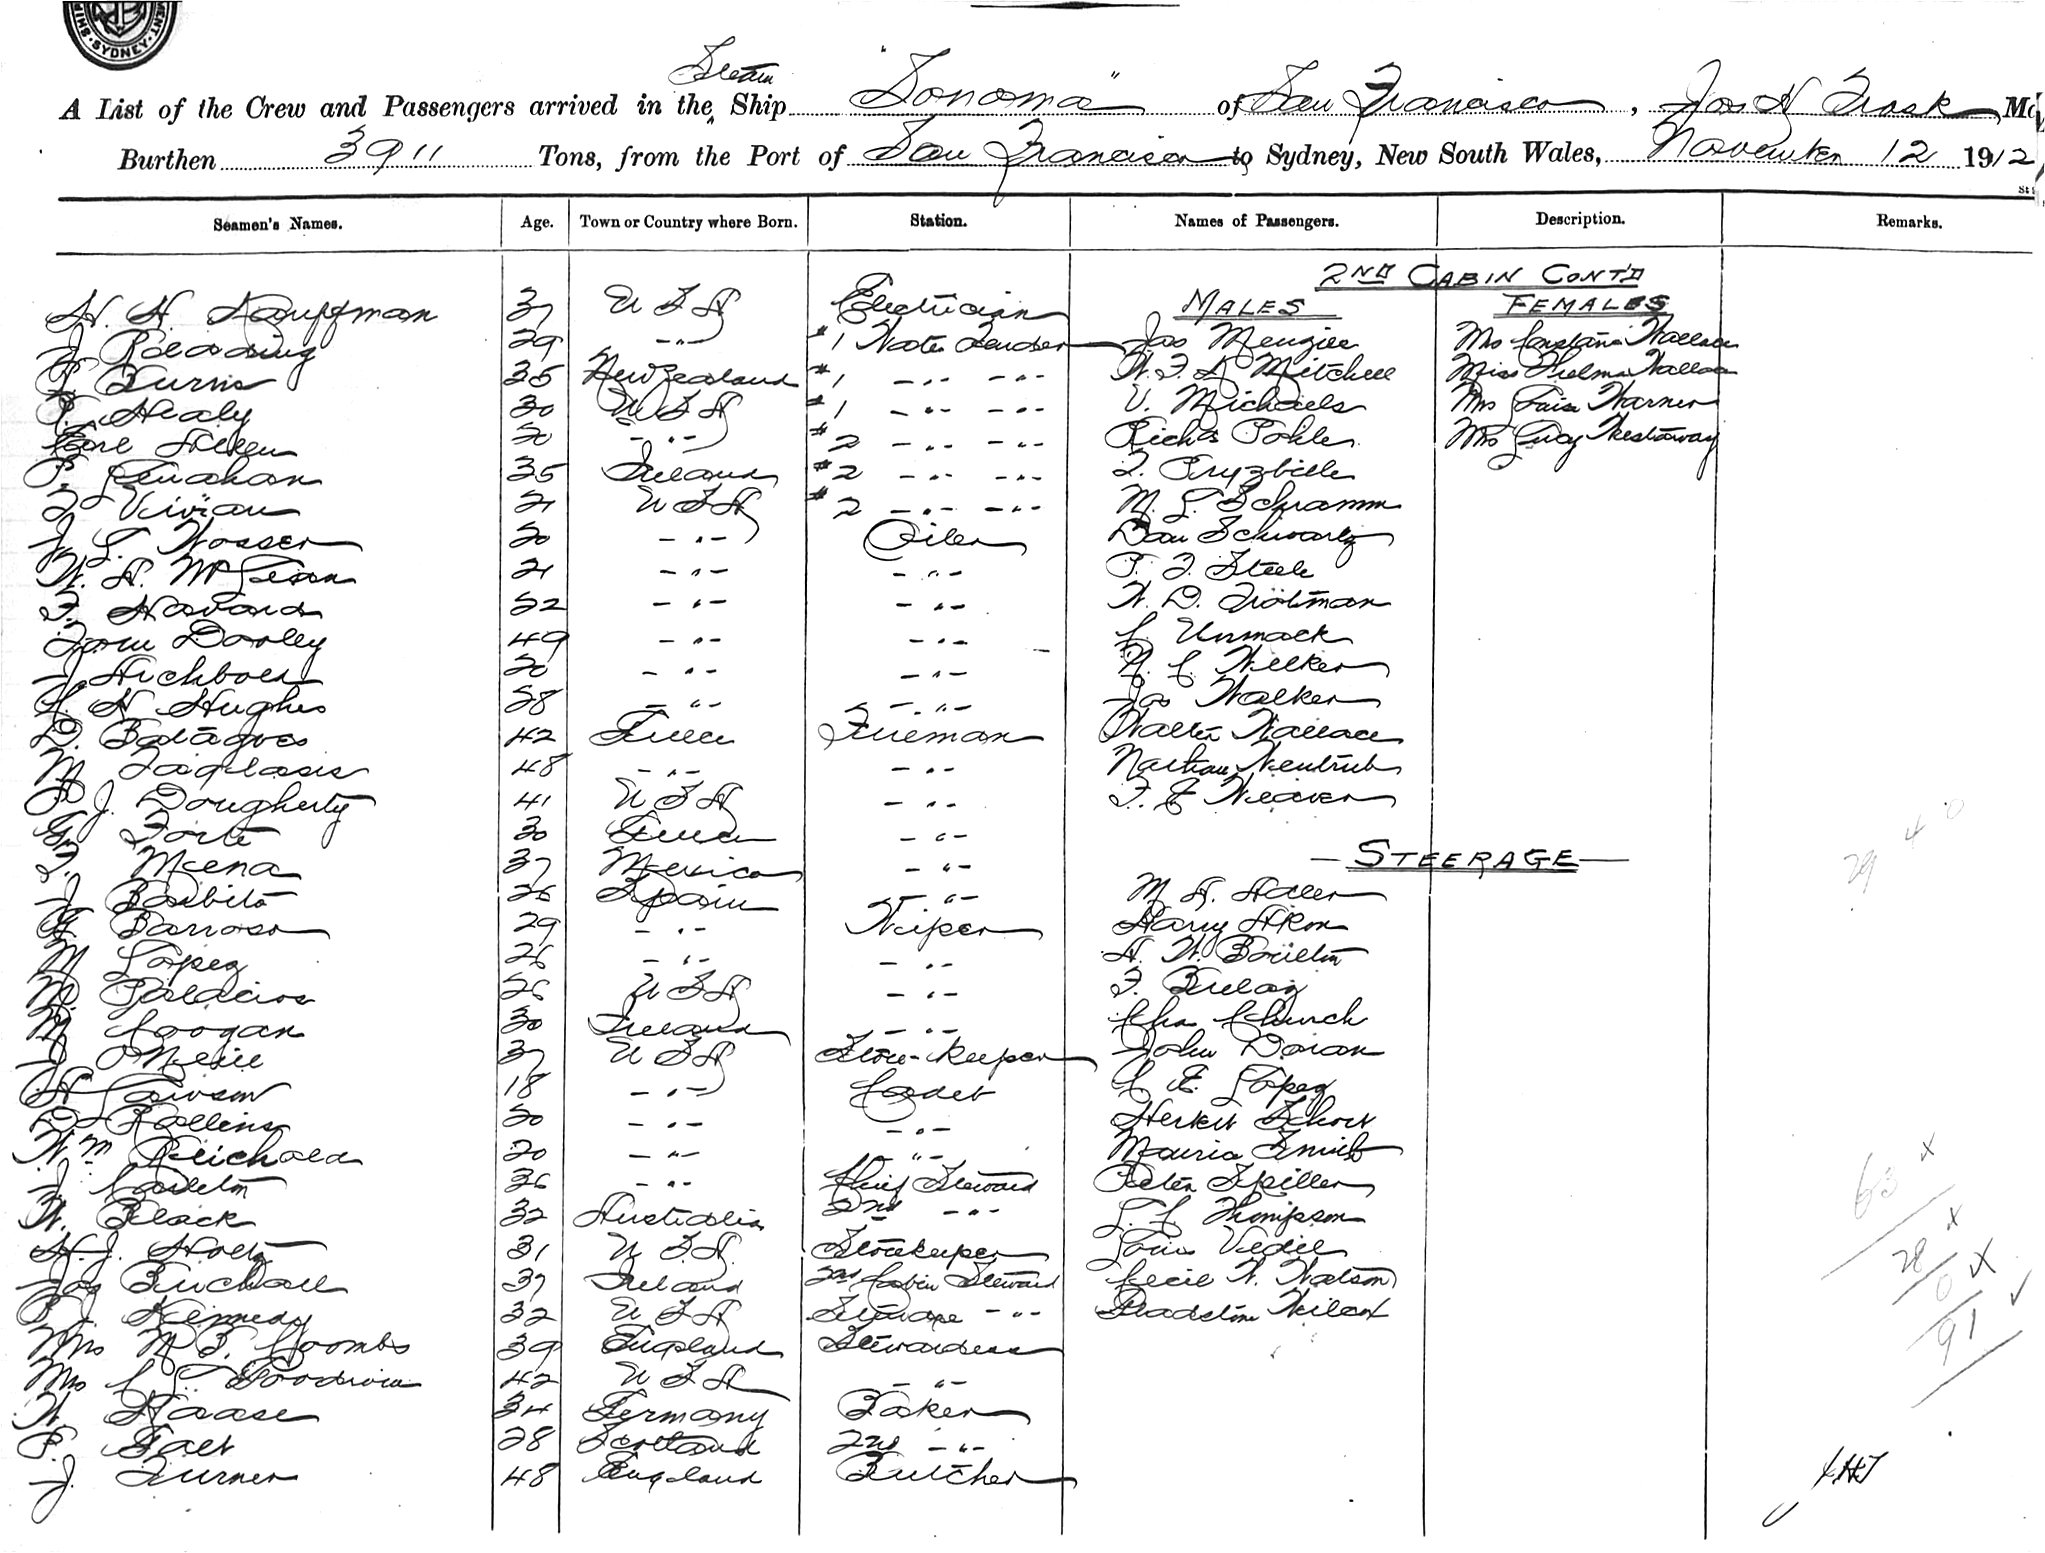 SYDNEY
Steam
A List of the Crew and Passengers arrived in the Ship "Sonoma" of San Francisco, Jas H Trask,
Burthen 3911 Tons, from the Port of San Francisco to Sydney, New South Wales, November 12 1912
Seamen's Names. Age. Town or Country where Born. Station. Names of Passengers. Description. Remarks.
2ND CABIN CONT'D
MALES FEMALES
H. H. Kauffman 37 U S A Electrician
J Reading 29 -"- #1 Water Tender Jas Menzies Mrs Constance Wallace
Burns 35 New Zealand #1 -"- -"- W. F. Mitchell Miss Thelma Wallace
T. Healy 30 U S A #1 -"- -"- V. Michaels Mrs Warner
-"- #2 -"- -"- Richd Pohle Mrs Lucy Westaway
P. Lenahan 35 Ireland #2 -"- -"-
Vivian 21 U S A #2 -"- -"- M. G. Schramm
J. G. Wosser 20 -"- Oiler Dan Schwartz
W. H. McLean 21 -"- -"- P. J. Steele
F. Havard 22 -"- -"- W. D. Trotman
Tom Dooley 49 -"- -"- C. Unmack
J Archbold 20 -"- -"- Welker
C H Hughes 28 -"- -"- Jas Walker
D. 42 Fireman Walter Wallace
M 48 -"- -"- Nathan Weintrub
P J. Dougherty 41 U S A -"- F. E Weaver
G. Forte 30 -"-
F. Mena 37 Mexico -"-
STEERAGE
J Barbito 26 Spain -"- M. H. Adler
Barroso 29 -"- Wiper Harry
M Lopez 26 -"- -"- H. W. Boulton
M. Palacios 26 U S A -"- F.
M Coogan 30 Ireland -"- Chas Church
J O'Neill 37 U S A Store-keeper John Doran
H Lawson 18 -"- Cadet C E. Lopez
D Rollins 20 -"- -"- Herbert Short
Wm Reichold 20 -"- -"- Maurice Smith
J Carleton 36 -"- Chief Steward Peter Spiller
W. Black 32 Australia 2nd -"- Thompson
H. J. Holt 31 U. S. A. Storekeeper Louis
Jas Birchall 37 Ireland 2nd Cabin Steward Cecil W. Watson
P J. Kennedy 32 U S A Steerage -"- Gladstone Wilcox
Mrs M B. Coombs 39 England Stewardess
Mrs C L. Goodwin 42 U S A -"-
W Haase 34 Germany Baker
P. Galt 28 Scotland 2nd -"-
J. Turner 48 England Butcher
29 4 0
63 x
28 x
0 x
91 ✓